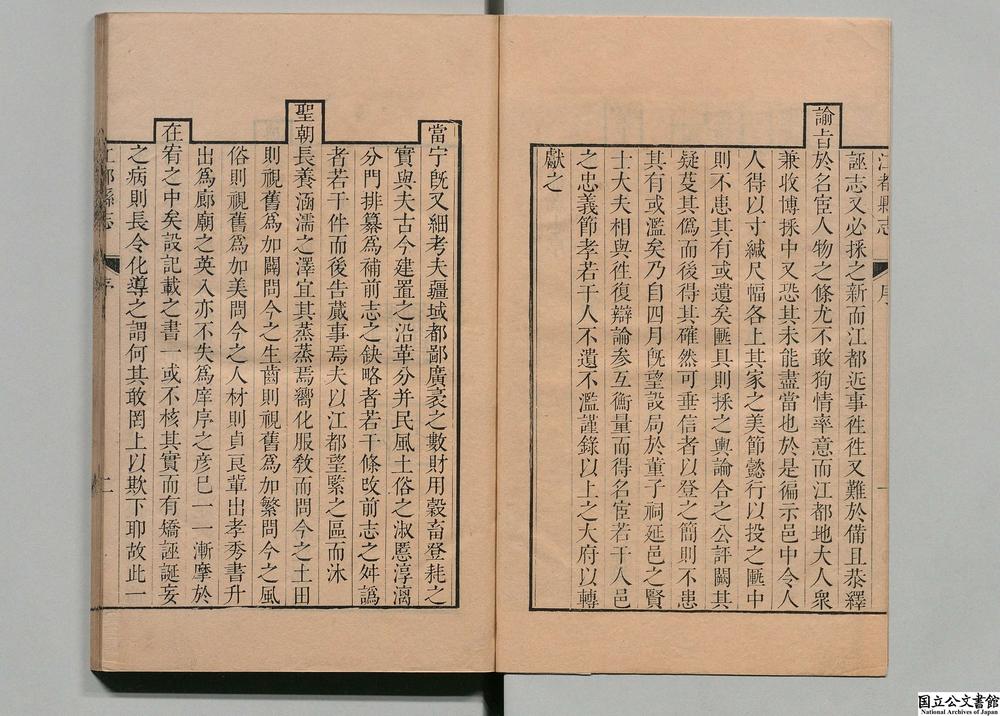 江都縣志
序
一
誣志又必採之新而江都近事徃徃又難於備且恭繹
諭旨於名宦人物之條尤不敢狥情率意而江都地大人衆
兼收博採中又恐其未能盡當也於是徧示邑中令人
人得以寸緘尺幅各上其家之美節懿行以投之匭中
則不患其有或遺矣匭具則採之輿論合之公評闕其
疑芟其僞而後得其確然可垂信者以登之簡則不患
其有或濫矣乃自四月旣望設局於董子祠延邑之賢
士大夫相與徃復辯論參互衡量而得名宦若干人邑
之忠義節孝若干人不遺不濫謹錄以上之大府以轉
獻之
當宁旣又細考夫疆域都鄙廣袤之數財用穀畜登耗之
實與夫古今建置之沿革分并民風土俗之淑慝淳漓
分門排纂爲補前志之缺略者若干條攺前志之舛譌
者若干件而後告蕆事焉夫以江都望緊之區而沐
聖朝長養涵濡之澤宜其蒸蒸焉嚮化服敎而問今之土田
則視舊爲加闢問今之生齒則視舊爲加繁問今之風
俗則視舊爲加美問今之人材則貞良輩出孝秀書升
出爲廊廟之英入亦不失爲庠序之彦巳一一漸摩於
在宥之中矣設記載之書一或不核其實而有矯誣誕妄
之病則長令化導之謂何其敢罔上以欺下耶故此一
江都縣志
序
二
国立公文書館
National Archives of Japan